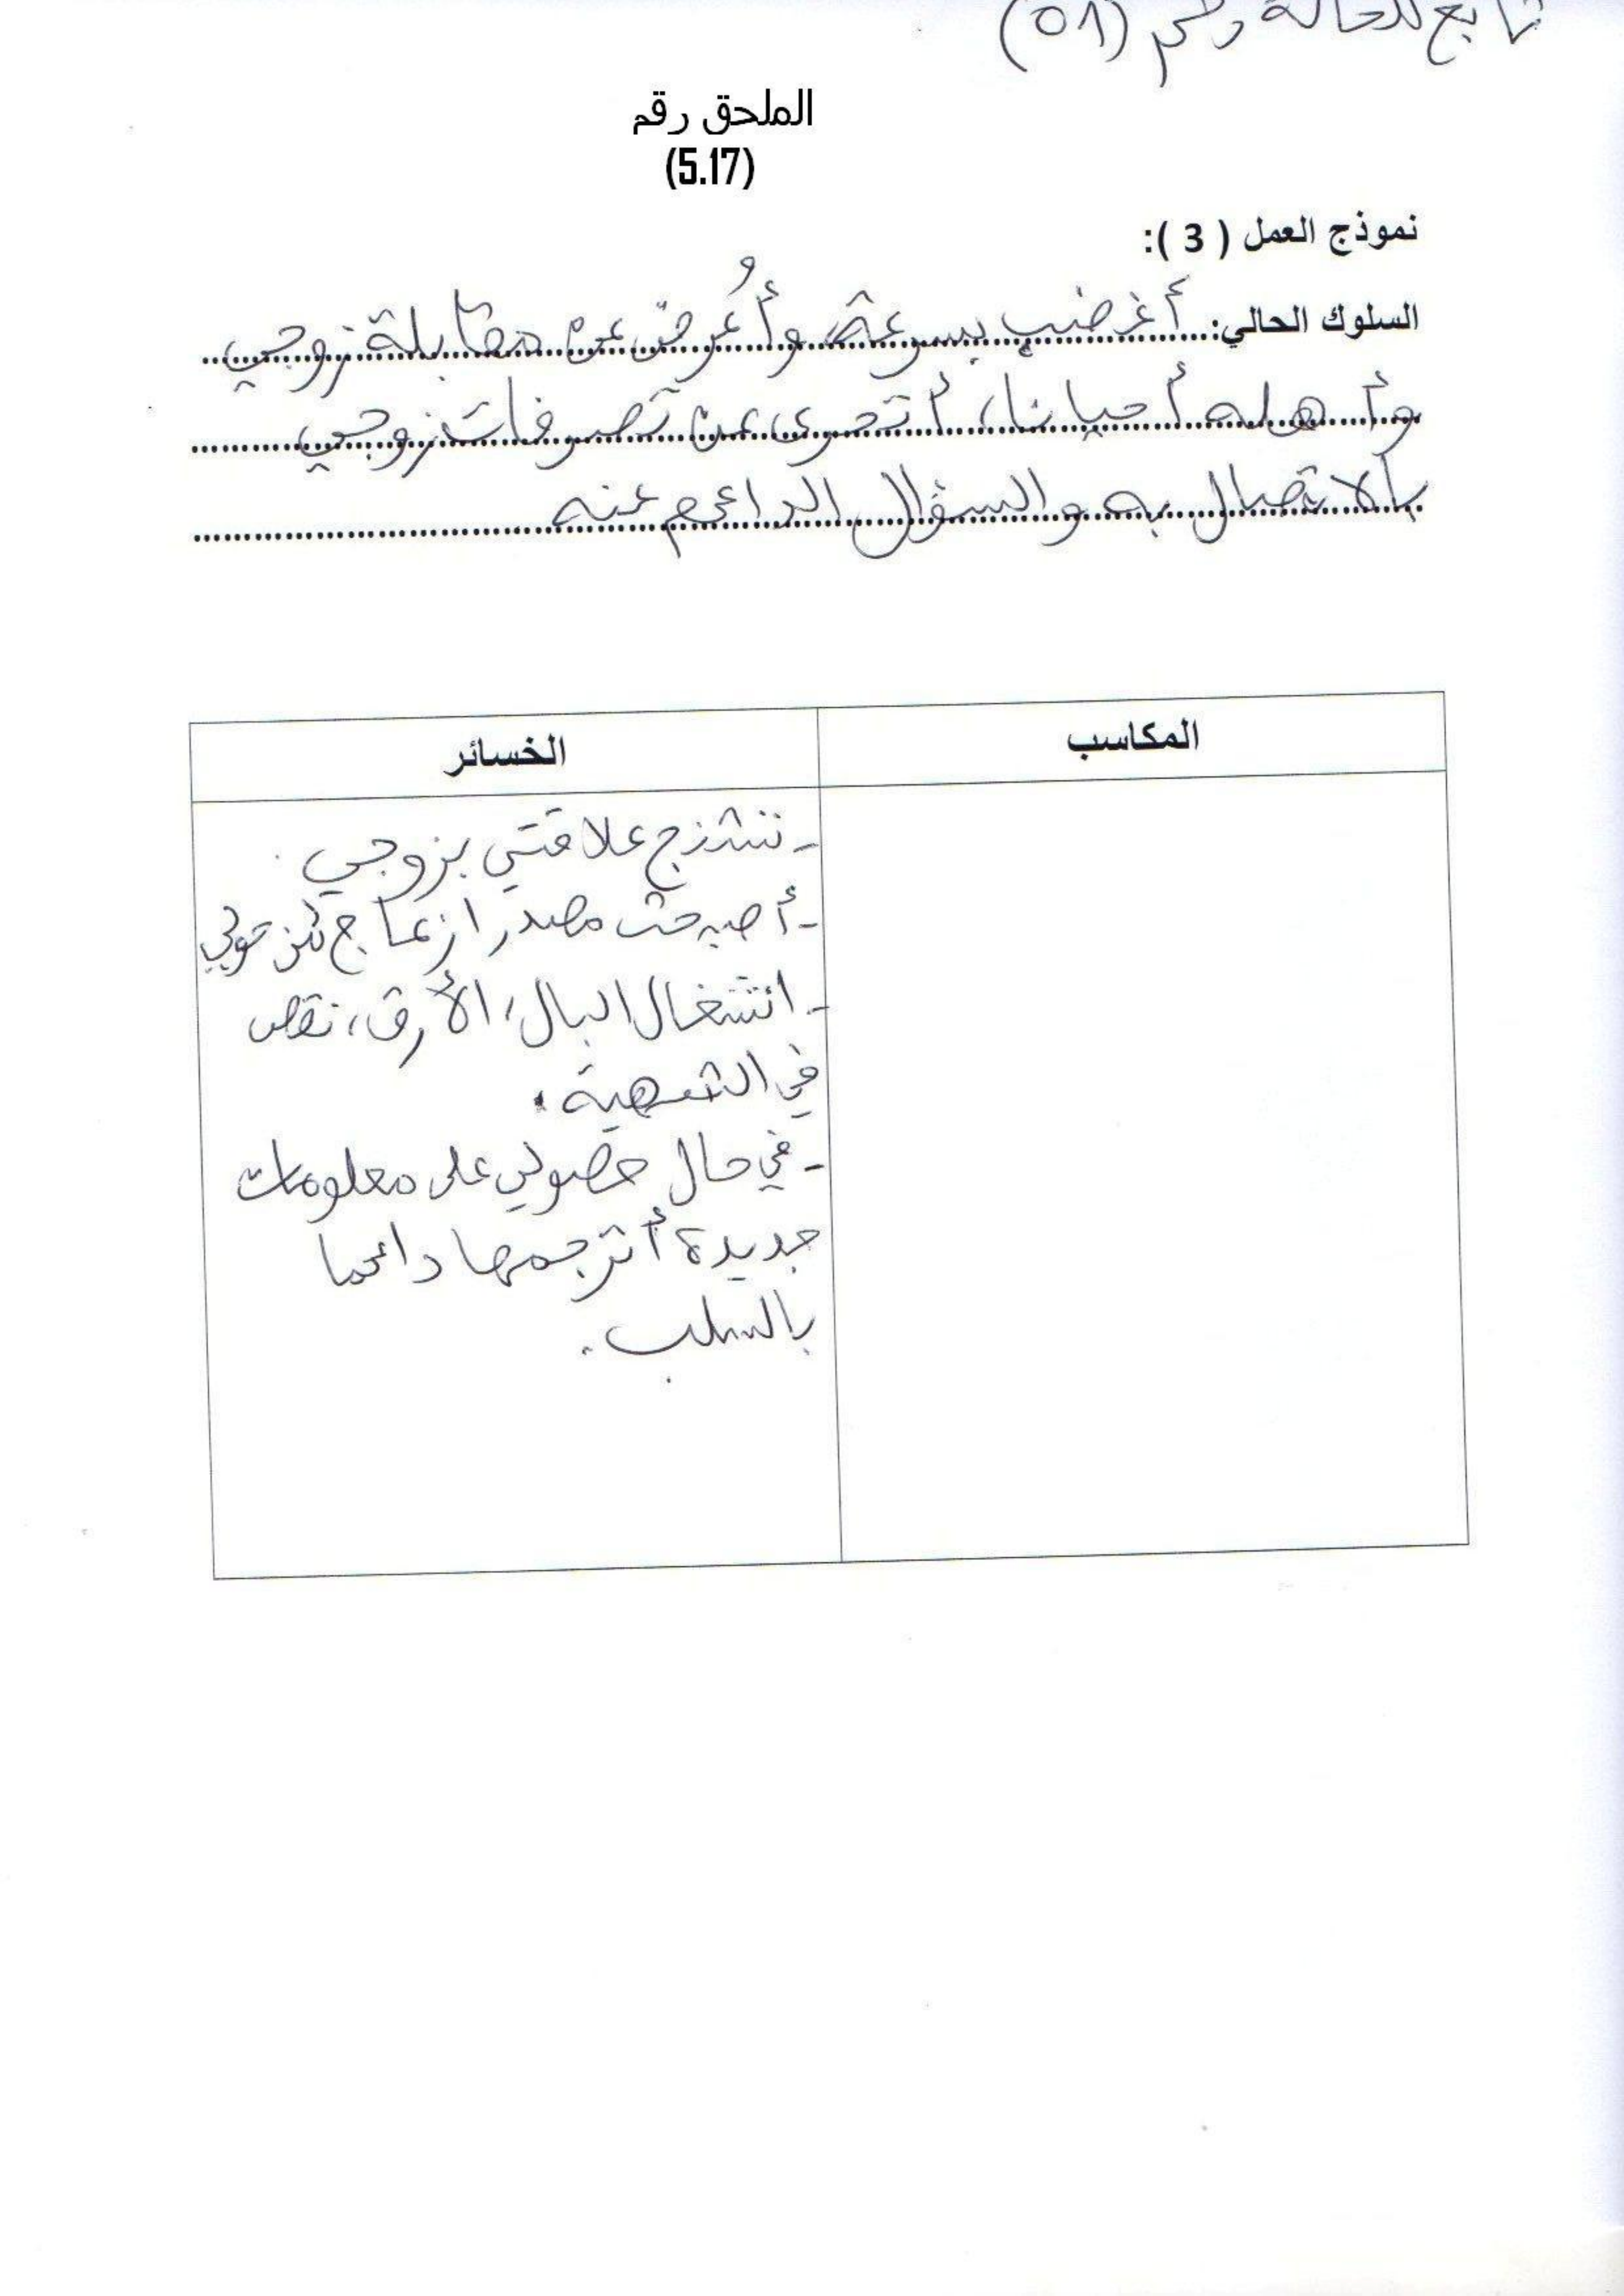 تابع للحالة رقم (01)
الملحق رقم
(5.17)
نموذج العمل ( 3 ):
السلوك الحالي: أغضب بسرعة وأُعرض عن مقابلة زوجي
وأهله أحيانا، أتحرى عن تصرفات زوجي
بالاتصال به والسؤال الدائم عنه
المكاسب
الخسائر
- تشنج علاقتي بزوجي.
- أصبحت مصدر ازعاج لمن حولي
- انشغال البال، الأرق، نقص
في الشهية.
- في حال حصولي على معلومات
جديدة أترجمها دائما
بالسلب.